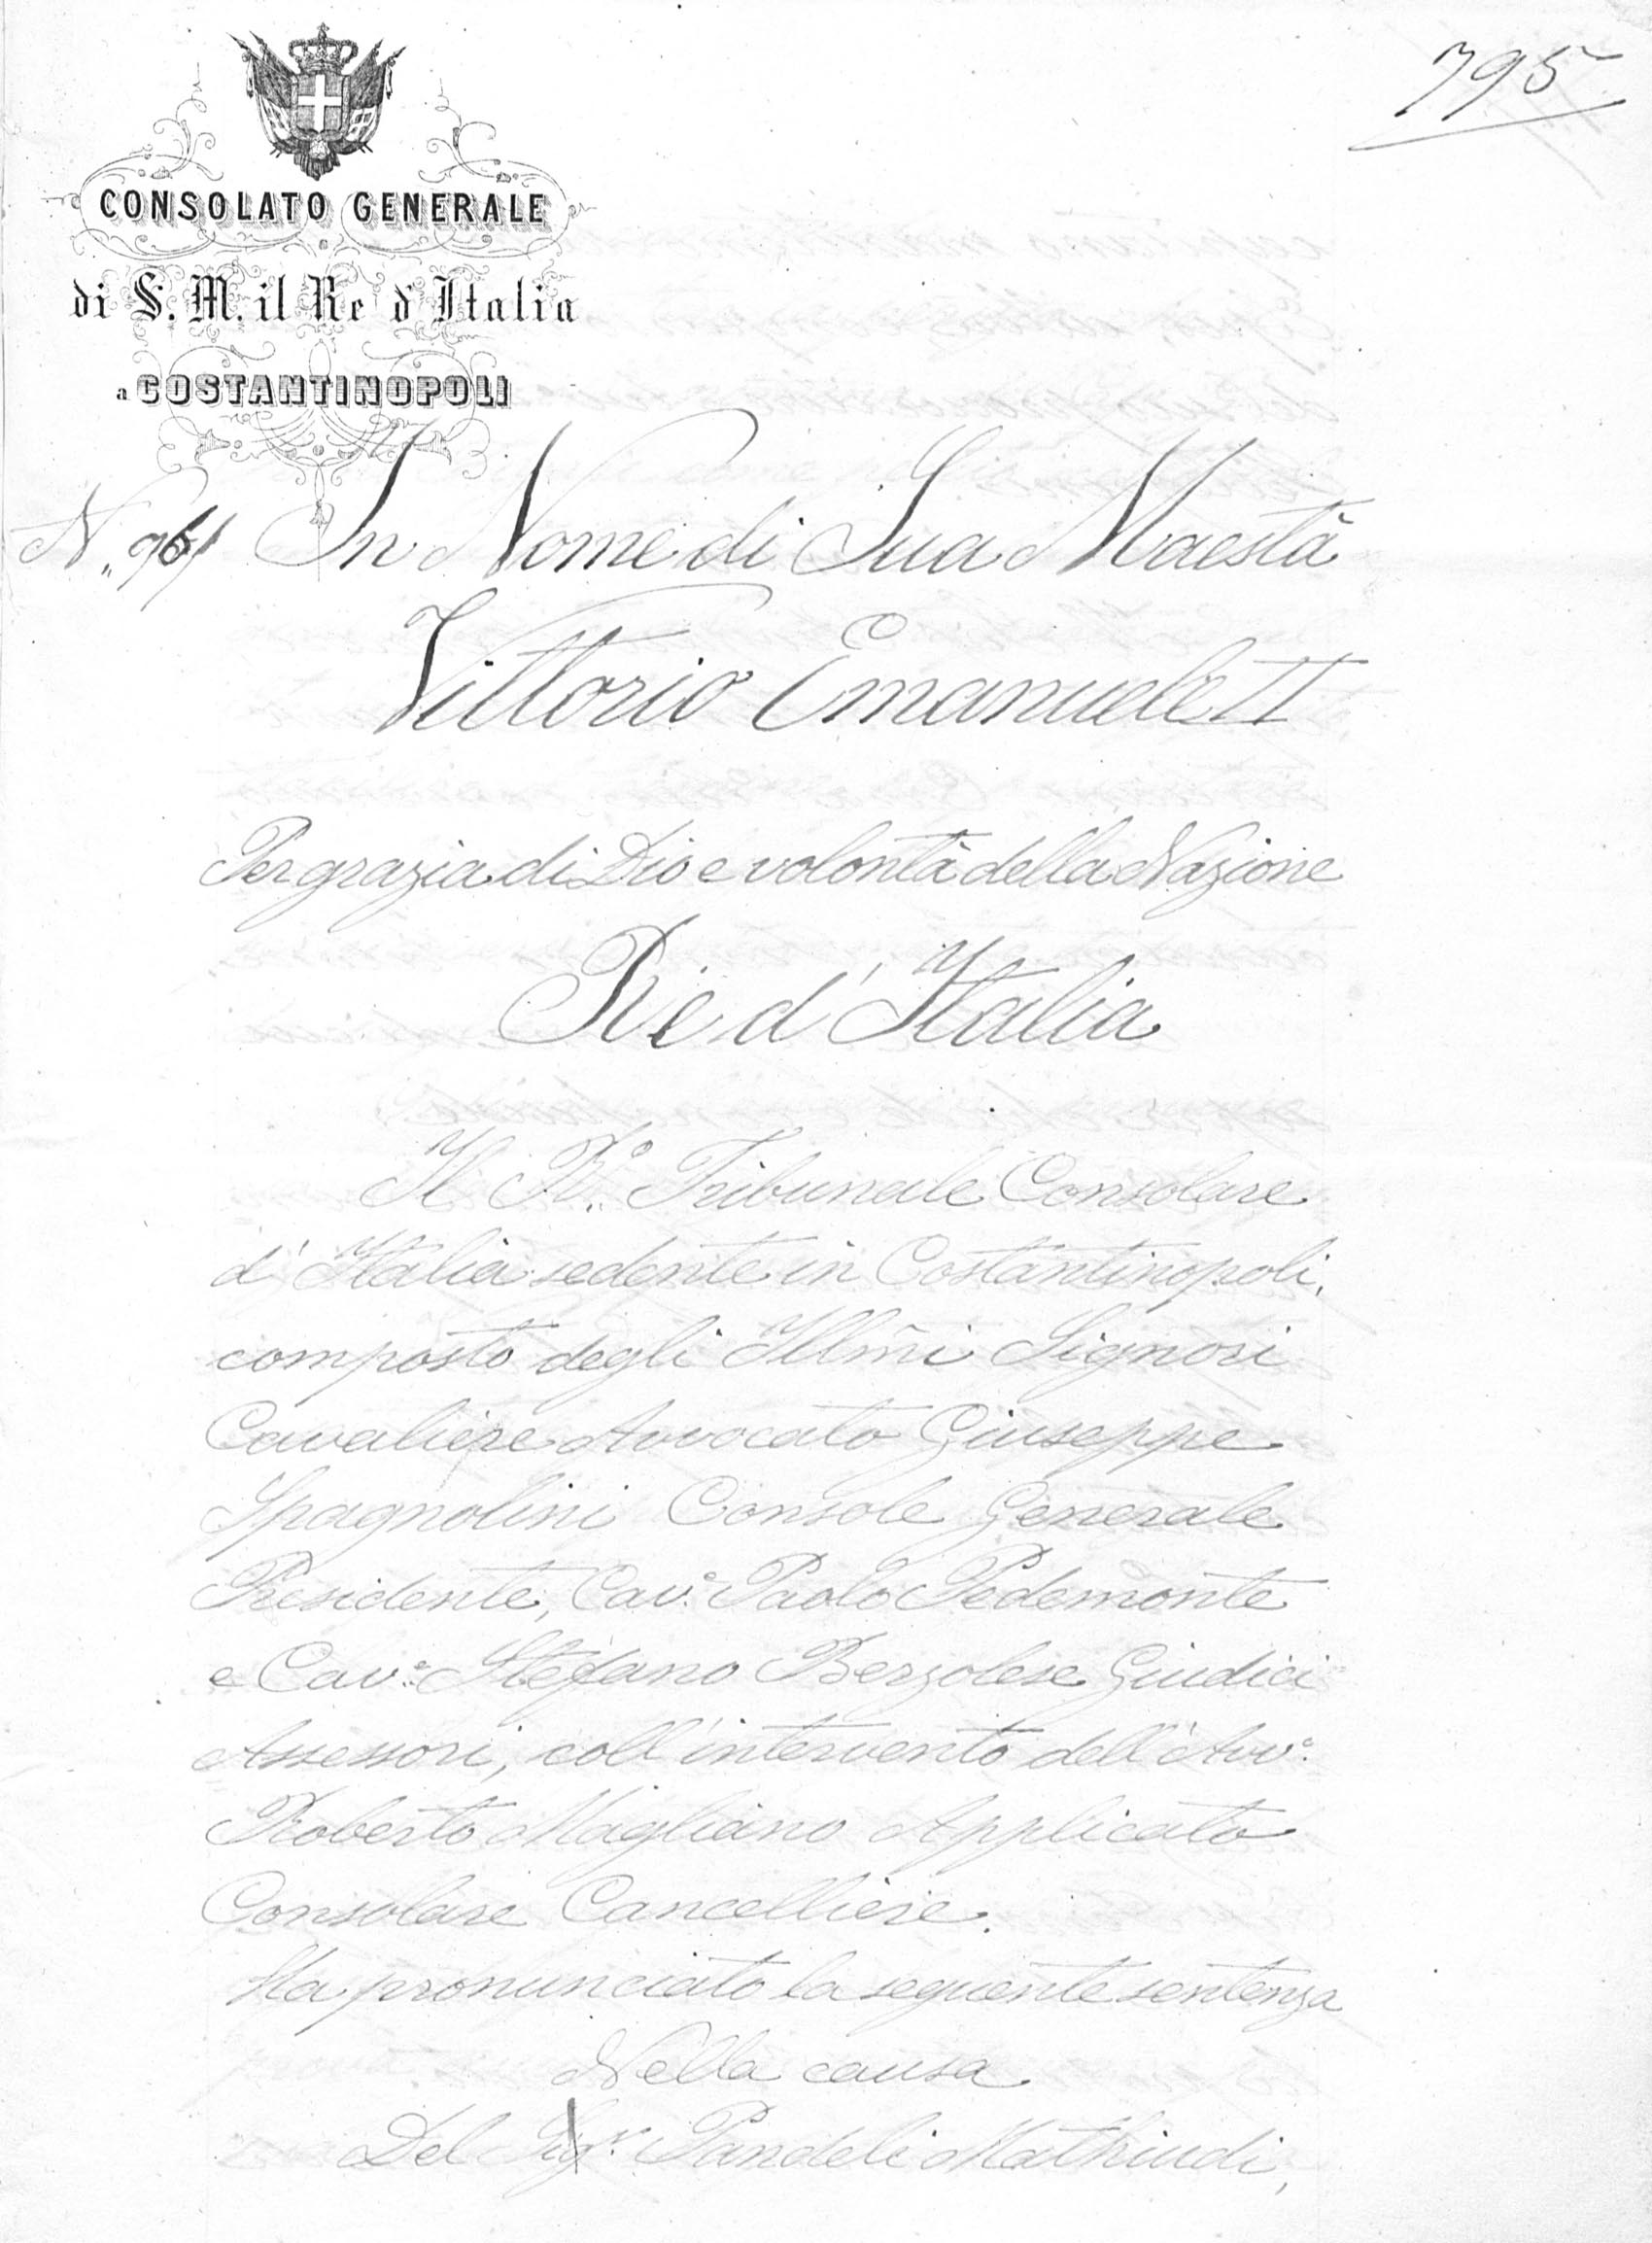 795
CONSOLATO GENERALE
di S. M. il Re d'Italia
a COSTANTINOPOLI
N.
In Nome di Sua Maestà
Vittorio Emanuele II
Per grazia di Dio e volontà della Nazione
Re d'Italia
Il R.º Tribunale Consolare
d'Italia sedente in Costantinopoli,
composto degli Illmi Signori
Cavaliere Avvocato Giuseppe
Spagnolini Console Generale
Presidente, Cav.e Paolo Pedemonte
e Cav.e Stefano Berzolese Giudici
Assessori, coll'intervento dell'Avv.o
Roberto Magliano Applicato
Consolare Cancelliere.
Ha pronunciato la seguente sentenza
Nella causa
Del Sig.r Pandeli